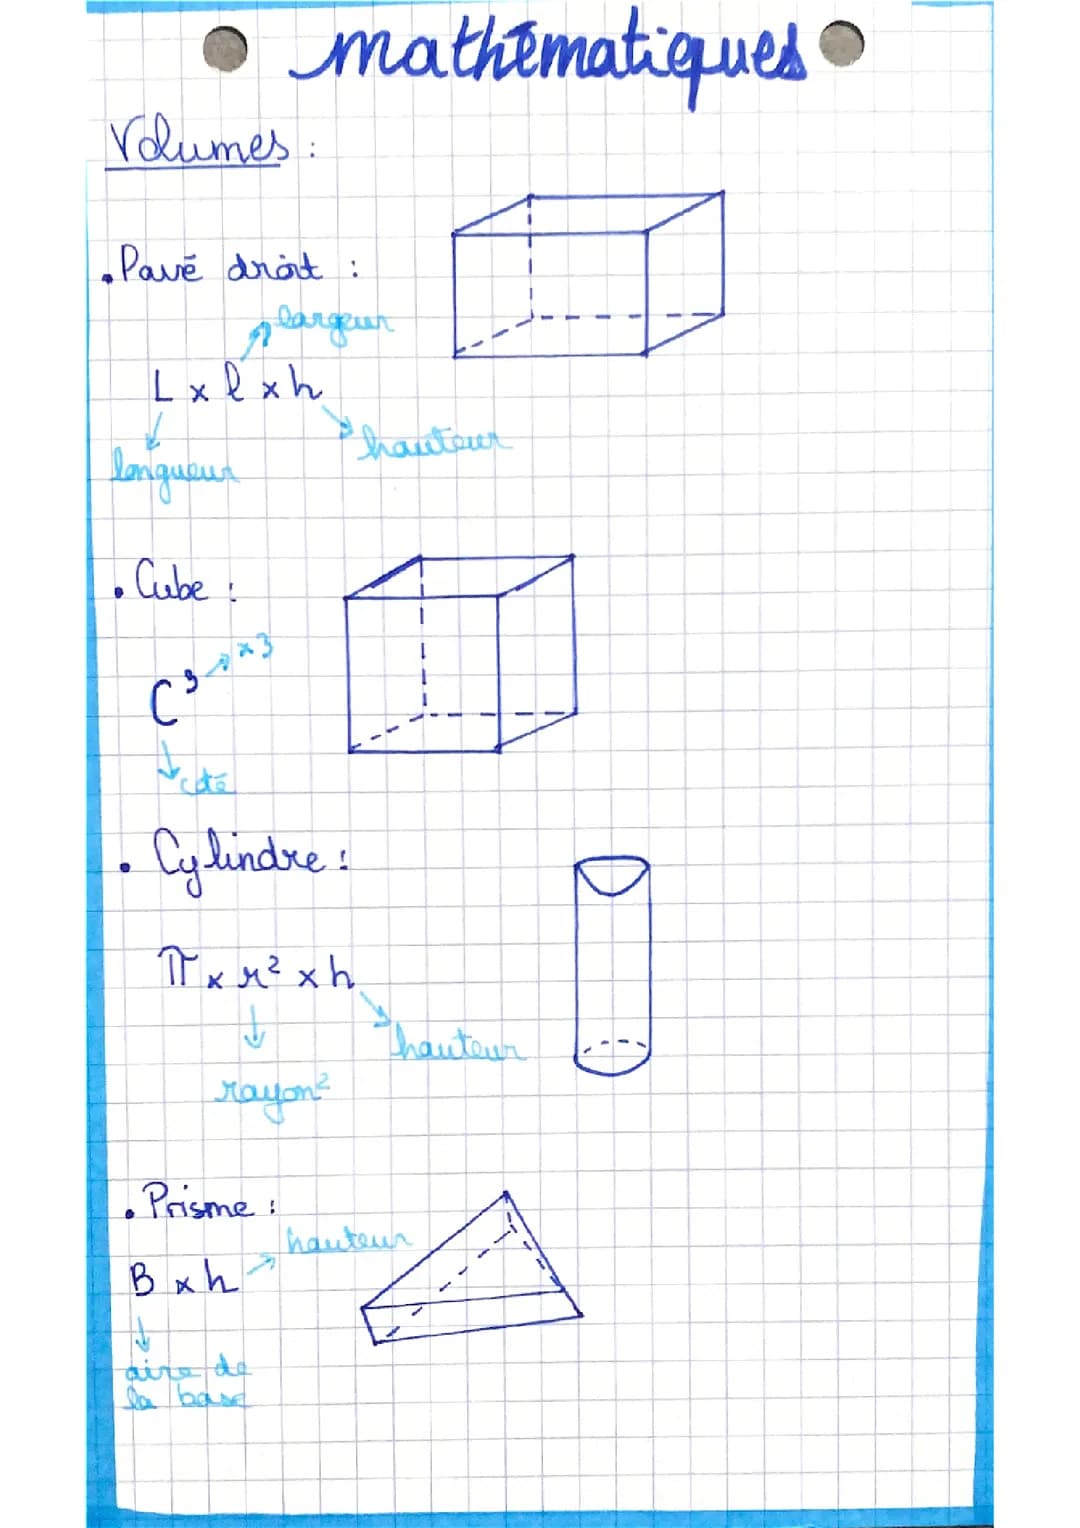 mathématiques
Volumes :
• Pavé droit :
largeur
L x l x h
hauteur
longueur
• Cube :
x3
C³
côté
• Cylindre :
π x r² x h
hauteur
rayon²
• Prisme :
hauteur
B x h
aire de
la base